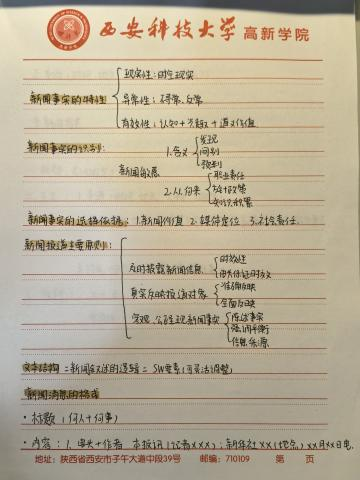 西安科技大学 高新学院
现实性：时空现实
新闻事实的特性
异常性：不寻常、反常
有效性：认知+兴趣+道义价值
新闻事实的识别：
1.含义
发现
识别
预判
新闻敏感
2.从何来
职业责任
方针政策
知识积累
新闻事实的选择依据：1.新闻价值 2.媒体定位 3.社会责任
新闻报道主要原则：
及时披露新闻信息
时效性
真实反映报道对象
准确反映
全面反映
客观、公正呈现新闻事实
陈述事实
强调平衡
信息来源
文本结构 = 新闻叙述的逻辑 = 5W要素(可灵活调整)
新闻消息的格式
· 标题(何人+何事)
· 内容：1. 电头+作者 本报讯(记者xxx)；新华社xx(地点)xx月xx日电
地址：陕西省西安市子午大道中段39号 邮编：710109 第 页